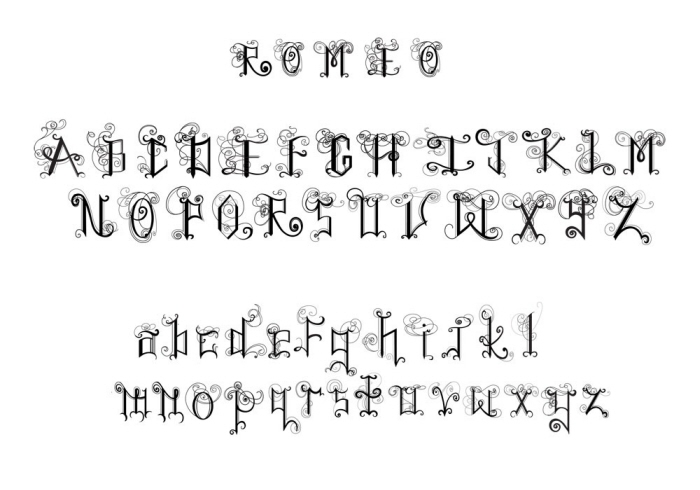 ROMEO
ABCDEFGHIJKLM
NOPQRSTUVWXYZ
abcdefghijkl
mnopqrstuvwxyz